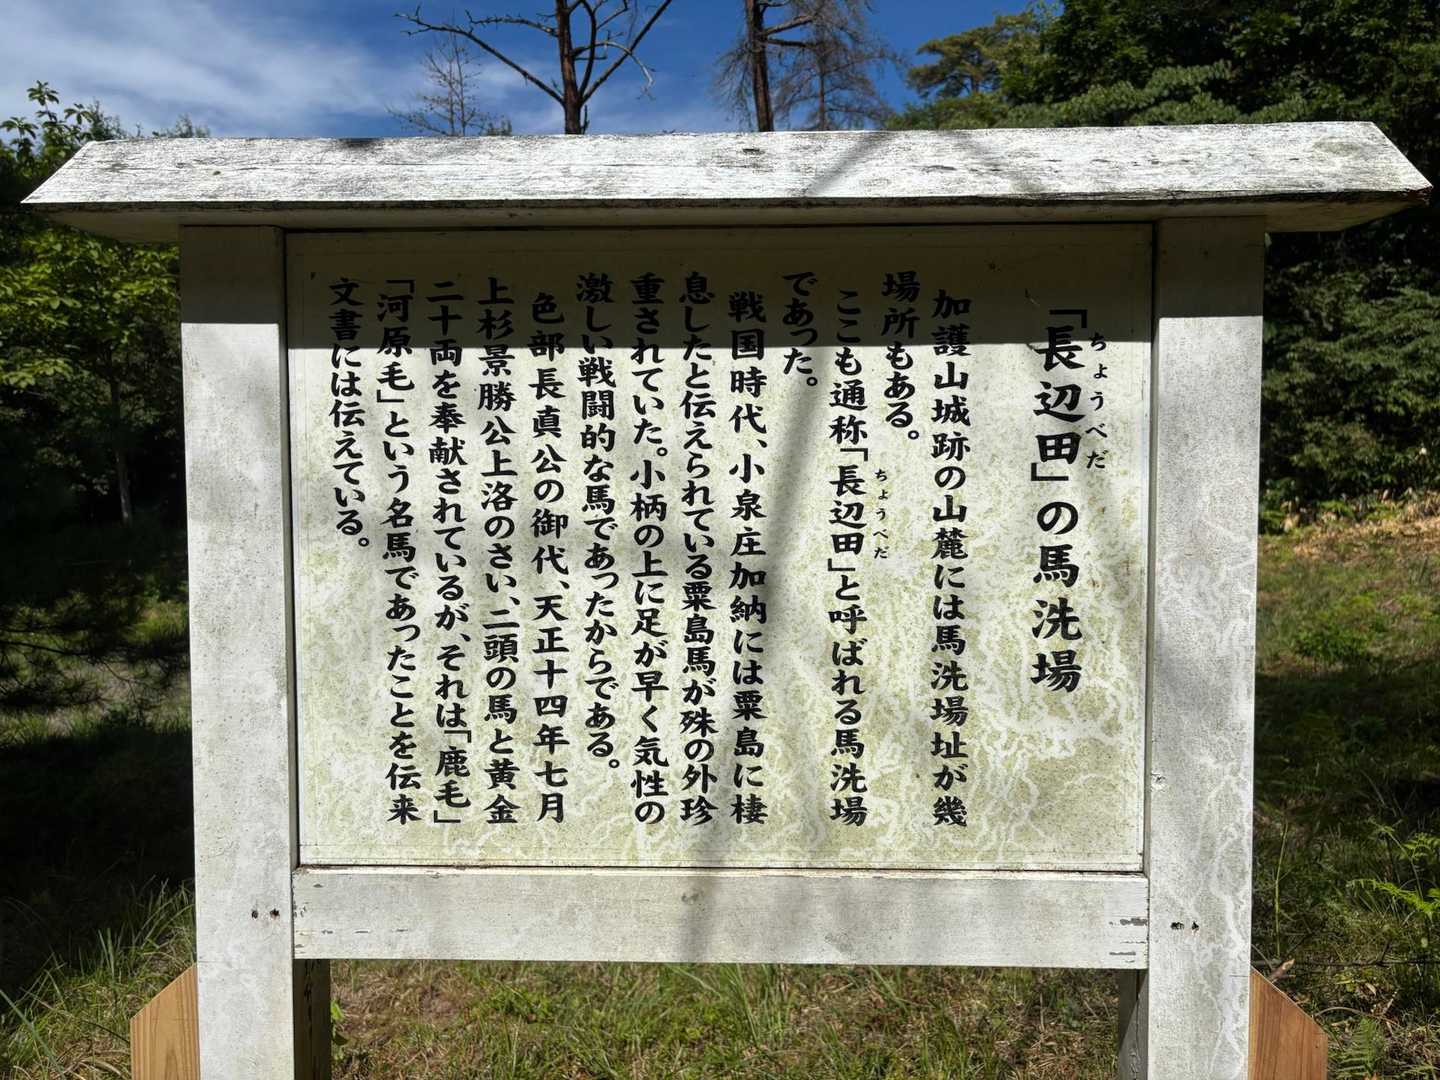 「長辺田」の馬洗場
ちょうべだ
加護山城跡の山麓には馬洗場址が幾
場所もある。
ここも通称「長辺田」と呼ばれる馬洗場
ちょうべだ
であった。
戦国時代、小泉庄加納には粟島に棲
息したと伝えられている粟島馬が殊の外珍
重されていた。小柄の上に足が早く気性の
激しい戦闘的な馬であったからである。
色部長真公の御代、天正十四年七月
上杉景勝公上洛のさい、二頭の馬と黄金
二十両を奉献されているが、それは「鹿毛」
「河原毛」という名馬であったことを伝来
文書には伝えている。